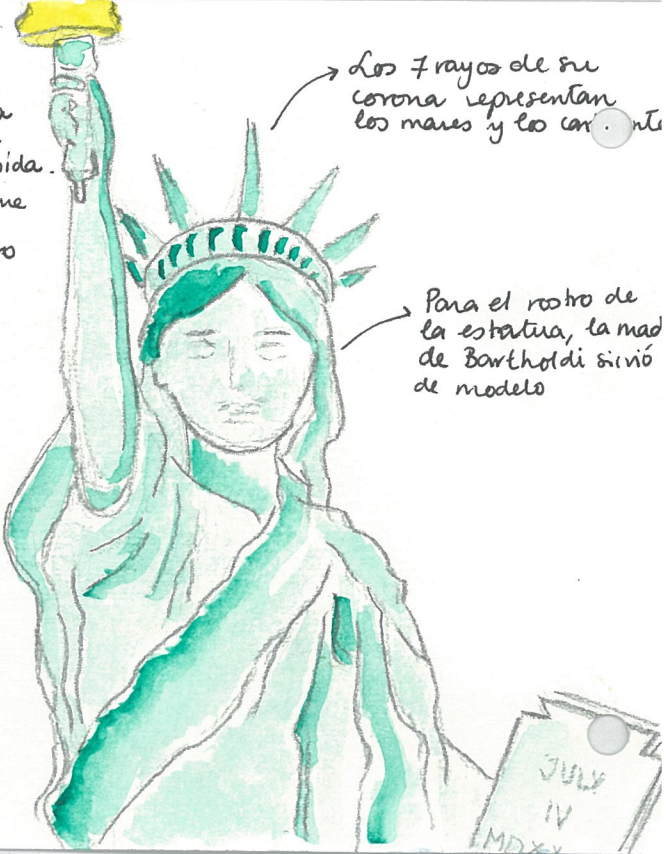 Los 7 rayos de su
corona representan
los mares y los
Para el rostro de
la estatua, la mad
de Bartholdi sirvió
de modelo
JULY
IV